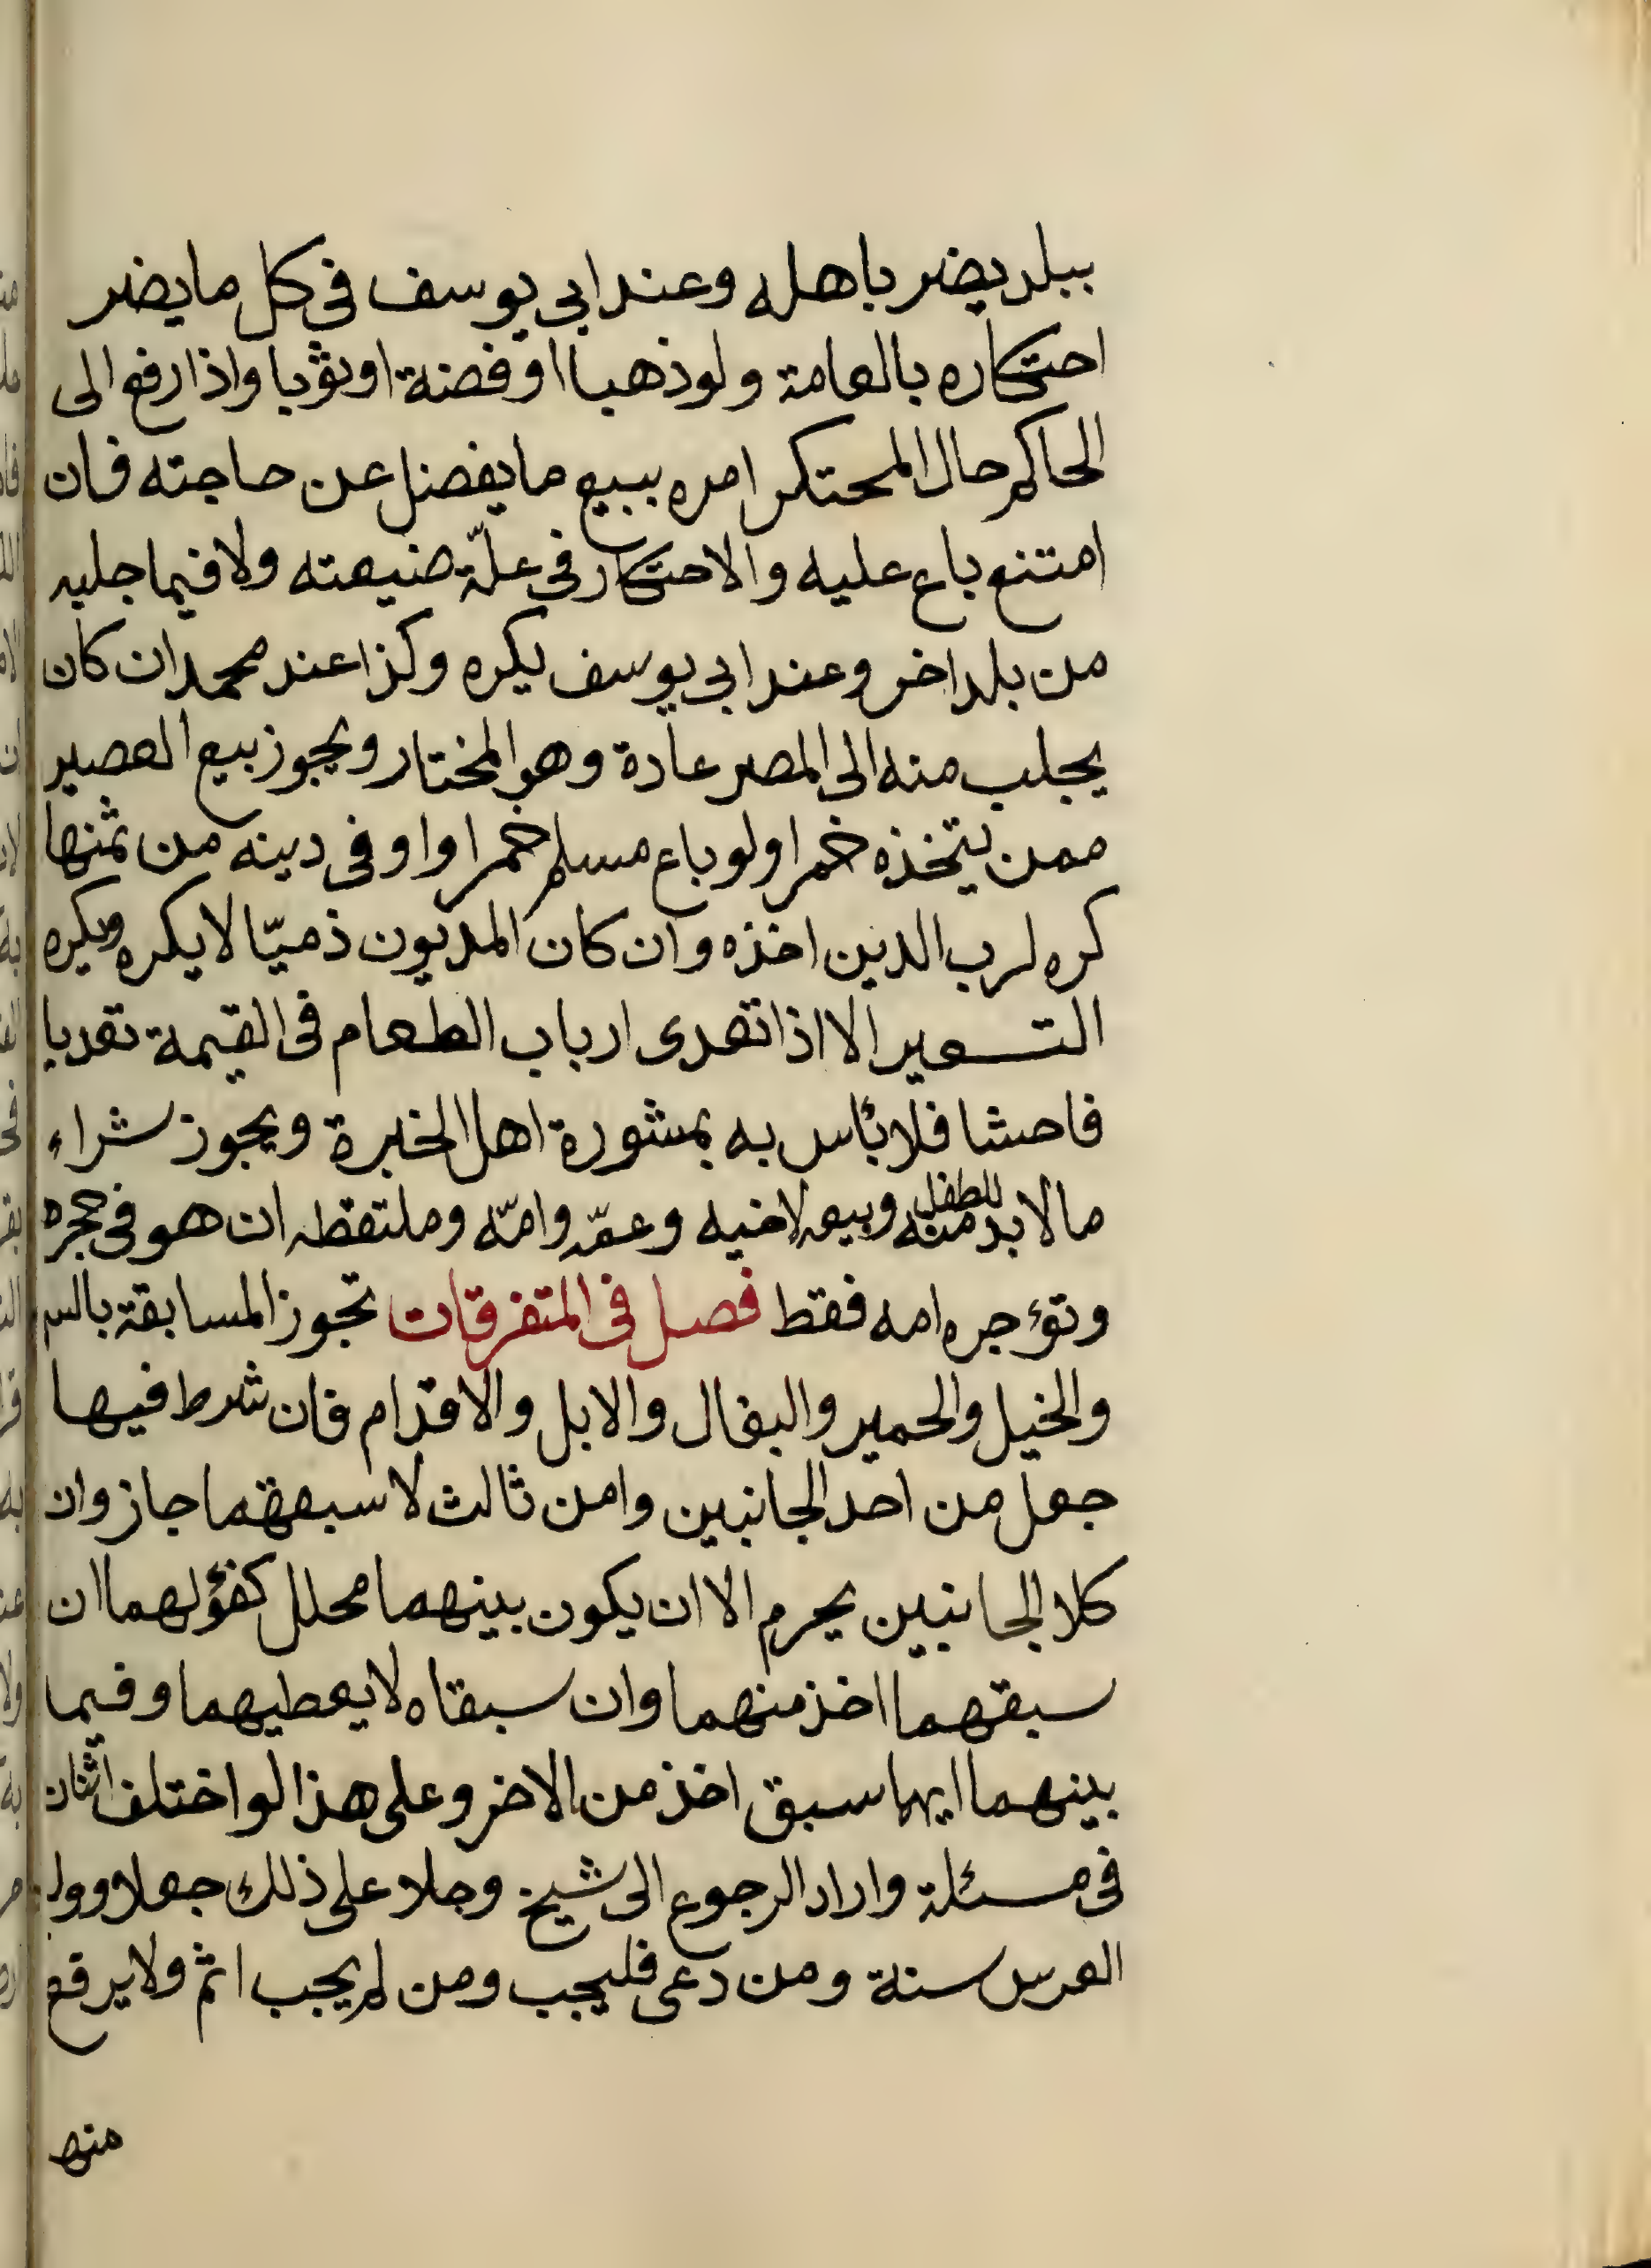 ببلد يضر باهله وعند ابى يوسف فى كل ما يضر
احتكاره بالعامة ولو ذهبا او فضة او ثوبا واذا رفع الى
الحاكم حال المحتكر امره ببيع ما يفضل عن حاجته فان
امتنع باع عليه والاحتكار فى علّة ضيعته ولا فيما جلبه
من بلد اخر وعند ابى يوسف يكره وكذا عند محمد ان كان
يجلب منه الى المصر عادة وهو المختار ويجوز بيع العصير
ممن يتخذه خمرا ولو باع مسلم خمرا واوفى دينه من ثمنها
كره لرب الدين اخذه وان كان المديون ذميّا لا يكره ويكره
التسعير الا اذا تعدى ارباب الطعام فى القيمة تعديا
فاحشا فلا بأس به بمشورة اهل الخبرة ويجوز شراء
ما لا بد للطفل منه وبيعه لاخيه وعمّه وامّه وملتقطه ان هو فى حجره
وتؤجره امه فقط فصل فى المتفرقات تجوز المسابقة بالسهم
والخيل والحمير والبغال والابل والاقدام فان شرط فيها
جعل من احد الجانبين وامن ثالث لا سبعهما جاز وان
كلا الجانبين يحرم الا ان يكون بينهما محلل كفؤ لهما ان
سبقهما اخذ منهما وان سبقاه لا يعطيهما وفيما
بينهما ايهما سبق اخذ من الاخر وعلى هذا لو اختلف اثنان
فى مسئلة واراد الرجوع الى شيخ وجلا على ذلك جعلا وول
العرس سنة ومن دعى فليجب ومن لم يجب اثم ولا يرفع
منها